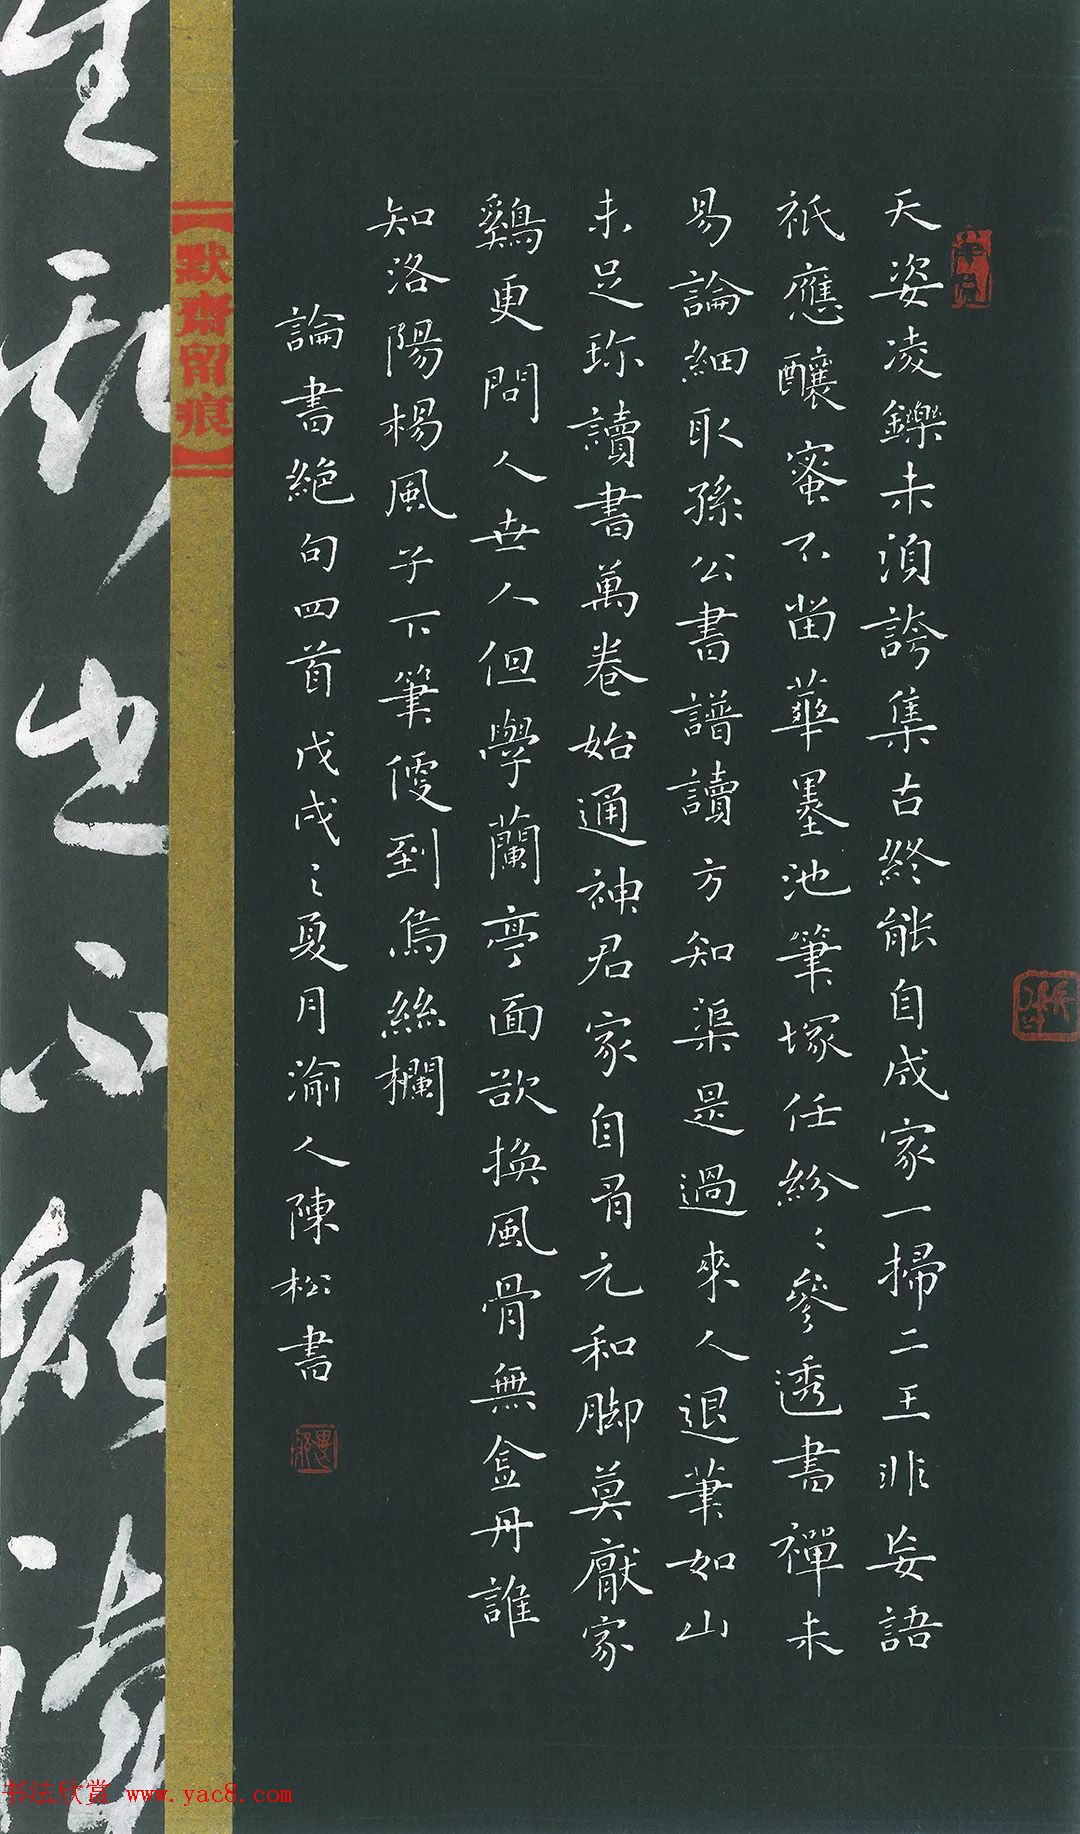 天姿凌鑠未須誇集古終能自成家一掃二王非妄語
祇應釀蜜不留華墨池筆塚任紛〻參透書禪未
易論細取孫公書譜讀方知渠是過來人退筆如山
未足珍讀書萬卷始通神君家自有元和脚莫厭家
鷄更問人世人但學蘭亭面欲換風骨無金丹誰
知洛陽楊風子下筆便到烏絲欄
論書絕句四首戊戌〻夏月渝人陳松書
【默齋留痕】
书法欣赏 www.yac8.com